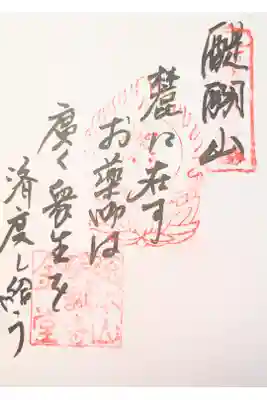 醍醐山
麓に在す
お薬師は
広く衆生を
済度し給う